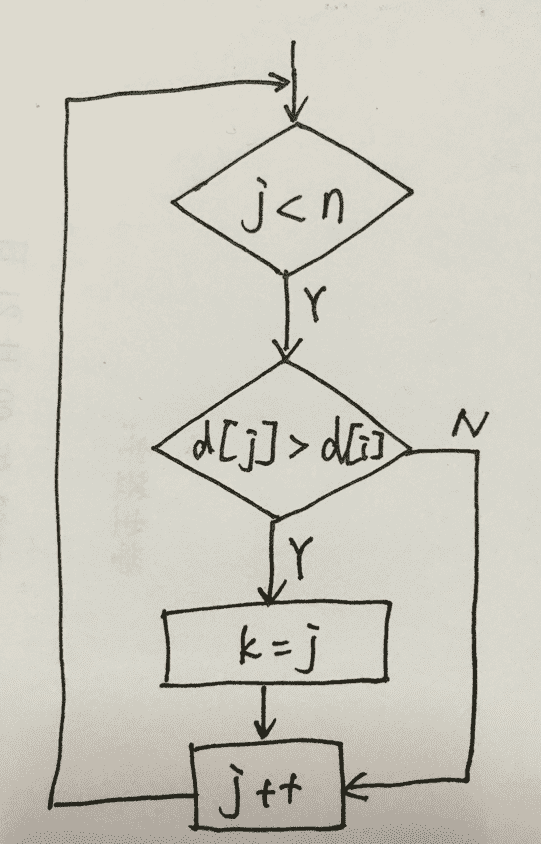 j < n
Y
d[j] > d[i]
N
Y
k = j
j++